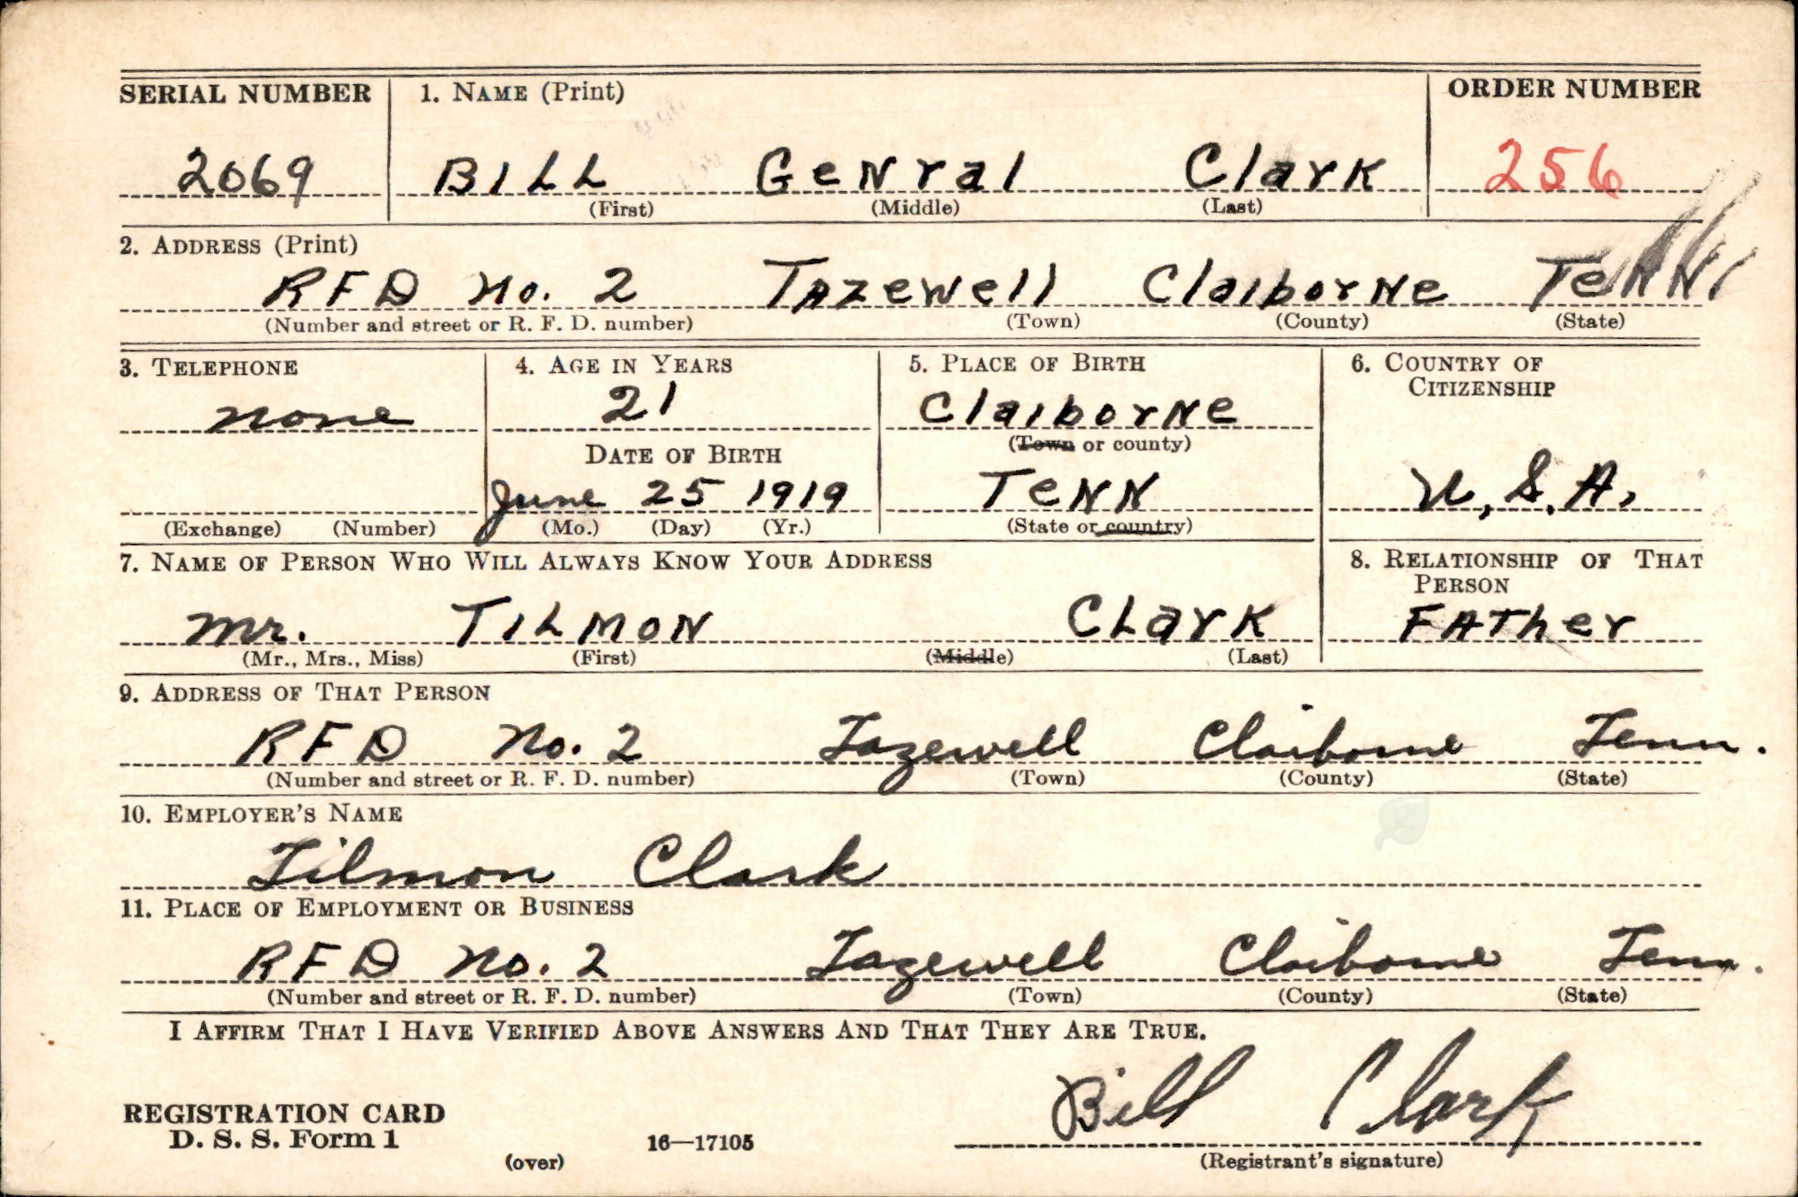 SERIAL NUMBER 1. NAME (Print) ORDER NUMBER
2069 BILL GeNral Clark 256
(First) (Middle) (Last)
2. ADDRESS (Print)
RFD No. 2 TAzewell ClaiborNe TeNN
(Number and street or R. F. D. number) (Town) (County) (State)
3. TELEPHONE 4. AGE IN YEARS 5. PLACE OF BIRTH 6. COUNTRY OF CITIZENSHIP
none 21 ClaiborNe
(Town or county)
DATE OF BIRTH
June 25 1919 TeNN U.S.A.
(Exchange) (Number) (Mo.) (Day) (Yr.) (State or country)
7. NAME OF PERSON WHO WILL ALWAYS KNOW YOUR ADDRESS 8. RELATIONSHIP OF THAT PERSON
Mr. TILMON CLarK FATher
(Mr., Mrs., Miss) (First) (Middle) (Last)
9. ADDRESS OF THAT PERSON
RFD No. 2 Tazewell Claiborne Tenn.
(Number and street or R. F. D. number) (Town) (County) (State)
10. EMPLOYER'S NAME
Tilmon Clark
11. PLACE OF EMPLOYMENT OR BUSINESS
RFD No. 2 Tazewell Claiborne Tenn.
(Number and street or R. F. D. number) (Town) (County) (State)
I AFFIRM THAT I HAVE VERIFIED ABOVE ANSWERS AND THAT THEY ARE TRUE.
Bill Clark
REGISTRATION CARD
D. S. S. Form 1 16—17105
(over) (Registrant's signature)